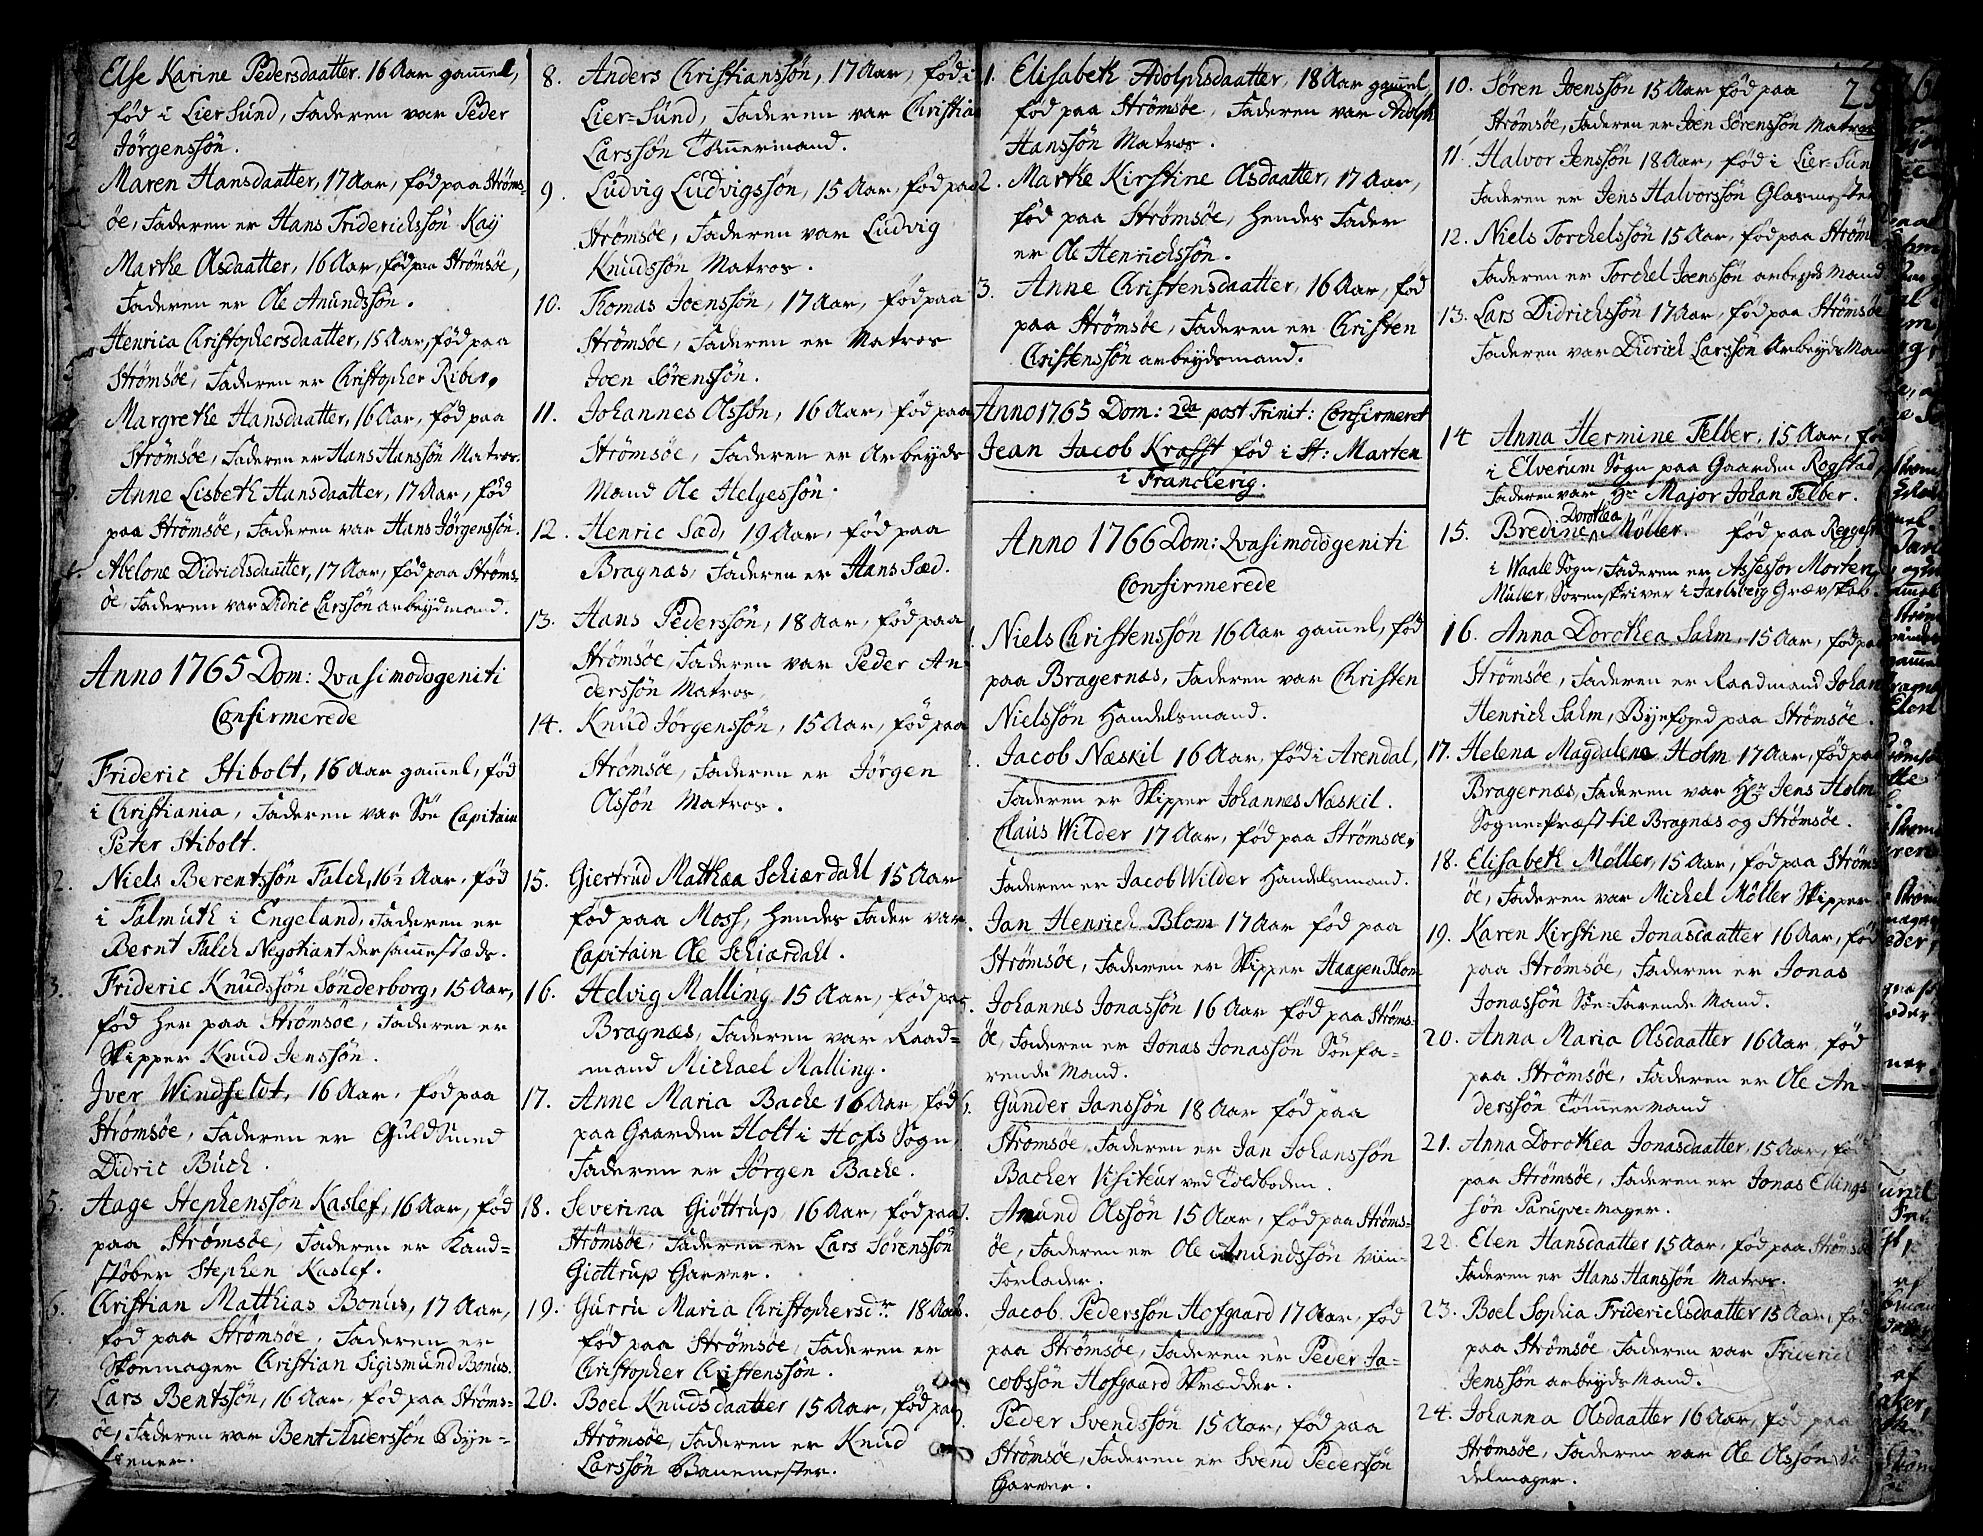 Else Karine Pedersdaatter. 16 Aar gam̃el,
fød i Lier Sund, Faderen var Peder
Jörgenssön.
Maren Hansdaatter, 17 Aar, fød paa Ströms-
öe, Faderen er Hans Friderichssön Kaÿ
Marthe Olsdaatter, 16 Aar, fød paa Strömsöe,
Faderen er Ole Anundssön.
Henrica Christophersdaatter, 15 Aar, fød paa
Strömsöe, Faderen er Christopher Riber.
Margrethe Hansdaatter, 16 Aar, fød paa
Strömsöe, Faderen er Hans Hanssön Matros.
Anne Lisbeth Hansdaatter, 17 Aar, fød
paa Strömsöe, Faderen var Hans Jörgenssön.
Abelone Didrichsdaatter, 17 Aar, fød paa Ströms-
öe, Faderen var Didric Larssön arbeydmand.
Anno 1765 Dom: Qvasimodogeniti
Confirmerede
Frideric Stibolt, 16 Aar gam̃el, fød
i Christiania, Faderen var Söe Capitain
Peter Stibolt.
2. Niels Berentssön Falch, 16½ Aar, fød
i Falmuth i Engeland, Faderen er
Bernt Falch Negotiant der sam̃estæds.
3. Frideric Knudssön Sönderborg, 15 Aar,
fød her paa Strömsöe, Faderen er
Skipper Knud Jenssön.
Jver Windfeldt, 16 Aar, fød paa
Strömsöe, Faderen er Guldsmed
Didric Buch.
5. Aage Stephenssön Kaslef, 16 Aar, fød
paa Strömsöe, Faderen er Kand-
støber Stephen Kaslef.
6. Christian Matthias Bonus, 17 Aar,
fød paa Strömsöe, Faderen er
Skoemager Christian Sigismund Bonus.
7. Lars Bentssön, 16 Aar, fød paa Ströms-
öe, Faderen var Bent Anderssön Bye-
tiener.
8. Anders Christianssön, 17 Aar, fød i
Lier-Sund, Faderen var Christian
Larssön Töm̃ermand.
9. Ludvig Ludvigssön, 15 Aar, fød paa
Strömsöe, Faderen var Ludvig
Knudssön Matros.
10. Thomas Joenssön, 17 Aar, fød paa
Strömsöe, Faderen er Matros
Joen Sörenssön.
11. Johannes Olssön, 16 Aar, fød paa
Strömsöe, Faderen er Arbeyds
Mand Ole Helgessön.
12. Henric Sæd, 19 Aar, fød paa
Bragnæs, Faderen er Hans Sæd.
13. Hans Pederssön, 18 Aar, fød paa
Strömsöe, Faderen var Peder An-
derssön Matros.
14. Knud Jörgenssön, 15 Aar, fød paa
Strömsöe, Faderen er Jörgen
Olssön Matros.
15. Giertrud Mathea Schiærdahl 15 Aar
fød paa Moss, hendes Fader var
Capitain Ole Schiærdahl.
16. Hedvig Malling 15 Aar, fød paa
Bragnæs, Faderen var Raad-
mand Michael Malling.
17. Anne Maria Bache 16 Aar, fød
paa Gaarden Holt i Hofs Sogn,
Faderen er Jörgen Bache.
18. Severina Giöttrup, 16 Aar, fød paa
Strömsöe, Faderen er Lars Sörenssön
Giöttrup Garver.
19. Gurru Maria Christophersdr. 18 Aar.
fød paa Strömsöe, Faderen er
Christopher Christenssön.
20. Boel Knudsdaatter 15 Aar, fød paa
Strömsöe, Faderen er Knud
Larssön Banemester.
1. Elisabeth Adolphsdaatter, 18 Aar gam̃el,
fød paa Strömsöe, Faderen var Adolph
Hanssön Matros.
2. Marthe Kirstine Olsdaatter, 17 Aar,
fød paa Strömsöe, hendes Fader
er Ole Henrichssön.
3. Anne Christensdaatter, 16 Aar, fød
paa Strömsöe, Faderen er Christen
Christenssön arbeydsmand.
Anno 1765 Dom: 2da post Trinit: Confirmeret
Jean Jacob Krafft fød i St: Marten
i Franckerig.
Anno 1766 Dom: Qvasimodogeniti
Confirmerede
Niels Christenssön 16 Aar gam̃el, fød
paa Bragernæs, Faderen var Christen
Nielssön Handelsmand.
Jacob Næskil 16 Aar, fød i Arendal,
Faderen er Skipper Johannes Næskil.
Claus Wilder 17 Aar, fød paa Strömsöe,
Faderen er Jacob Wilder Handelsmand.
Jan Henrich Blom 17 Aar fød paa
Strömsöe, Faderen er Skipper Haagen Blom
Johannes Jonassön 16 Aar fød paa Ströms-
öe, Faderen er Jonas Jonassön Söefa-
rende Mand.
6. Gunder Janssön 18 Aar fød paa
Strömsöe, Faderen er Jan Johanssön
Bacher Visiteur ved Toldboden.
Anund Olssön 15 Aar, fød paa Ströms-
öe, Faderen er Ole Anundssön Viin-
Forlader.
Jacob Pederssön Hofgaard 17 Aar, fød
paa Strömsöe, Faderen er Peder Ja-
cobssön Hofgaard Skrædder.
Peder Svendssön 15 Aar, fød paa
Strömsöe, Faderen er Svend Pederssön
Garver.
25
10. Sören Joenssön 15 Aar fød paa
Strömsöe, Faderen er Joen Sörenssön Matros
11. Halvor Jenssön 18 Aar, fød i Lier-Sun
Faderen er Jens Halvorssön Glarmester
12. Niels Torchelssön 15 Aar, fød paa Ströms
Faderen er Torchel Joenssön arbeyds Mand
13. Lars Didrichssön 17 Aar, fød paa Strömsöe
Faderen var Didrich Larssön ArbeydsMan
14 Anna Hermine Felber, 15 Aar, fød
i Elverum Sogn paa Gaarden Rogstad,
Faderen var Hr Major Johan Felber.
15. Bredine Dorothea Möller. fød paa
i Waale Sogn, Faderen er Assessor Morten
Müller Sorenskriver i Jarlsberg Grævskab.
16. Anna Dorothea Sahm, 15 Aar, fød paa
Strömsöe, Faderen er Raadmand Johan
Henrich Sahm, Byefoged paa Strömsöe.
17. Helena Magdalena Holm 17 Aar, fød paa
Bragernæs, Faderen var Hr Jens Holm
Sogne-Præst til Bragnæs og Strömsöe.
18. Elisabeth Möller, 15 Aar, fød paa Ströms
öe, Faderen var Michel Möller Skipper
19. Karen Kirstine Jonasdaatter 16 Aar, fød
paa Strömsöe, Faderen er Jonas
Jonassön Söe-Farende Mand.
20. Anna Maria Olsdaatter 16 Aar, fød
paa Strömsöe, Faderen er Ole An-
derssön Töm̃ermand
21. Anna Dorothea Jonasdaatter, 15 Aar, fød
paa Strömsöe, Faderen er Jonas Ellings
sön Paruqve-mager.
22. Elen Hansdaatter 15 Aar, fød paa Strömsöe
Faderen er Hans Hanssön Matros.
23. Boel Sophia Friderichsdaatter 15 Aar, fød
paa Strömsöe, Faderen var Friderich
Jenssön arbeyds Mand.
24. Johanna Olsdaatter 16 Aar, fød paa
Strömsöe, Faderen var Ole Olssön Sa
delmager.